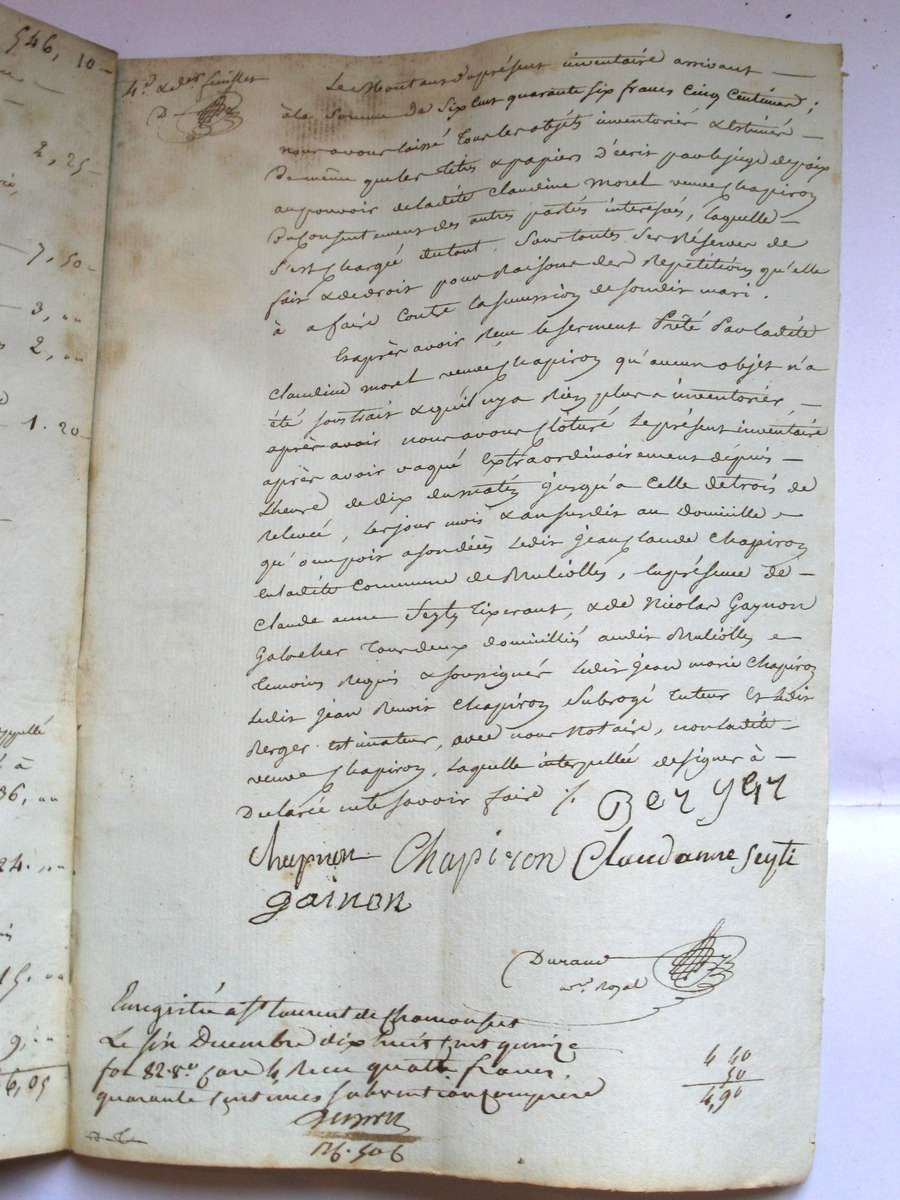 546, 10
2, 25
7, 50
3, ""
2, ""
1. 20
appellé
à
36, ""
24. ""
15. ""
9. ""
6, 05
4e. & der feuillet
D
Le Montant du présent inventaire arrivant
à la somme de six cent quarante six francs cinq centimes;
nous avons laissé tous les objets inventoriés & estimés
de même que les titres & papiers d'écrit par le juge de paix
au pouvoir de ladite Claudine Morel veuve Chapiron
du consentement des autres parties intéressés, laquelle
s'est chargé du tout. sous toutes ses Réserves de
fait & de droit pour Raisons des Répétitions qu'elle
à a faire contre la succession de son dit mari.
Et après avoir Reçu le serment Prêté Par ladite
Claudine morel veuve Chapiron qu'aucun objet n'a
été soustrait & qu'il n'y a Rien plus à inventorier
après avoir nous avons Cloturé le présent inventaire
après avoir vaqué Extraordinairement depuis
L'heure de dix du matin jusqu'à Celle de trois de
Relevée, les jour mois & an susdit au domicille
qu'occupoit a son décès ledit Jean Claude Chapiron
en ladite Commune de Muliolles, en présence de
Claude anne Seyty Tixerant, & de Nicolas Gaynon
Galocher tous deux domicilliés audit Muliolles
temoins Requis & soussignés ledit jean marie Chapiron
ledit jean Benoit Chapiron Subrogé tuteur Et ledit
Berger estimateur, avec nous Notaire, non ladite
veuve Chapiron, laquelle interpellée de signer à
Déclarée ne le savoir faire ./.
Berger
Chapiron Chapiron Claudanne Seyti
gainon
Durand
nre. Royal
Enregistré à St. Laurent de Chamousset
Le six Decembre dix huit cent quinze
fol 82. Vo. Case 4 Reçu quatre francs
quarante centimes subvention comprise
4 40
50
4,90